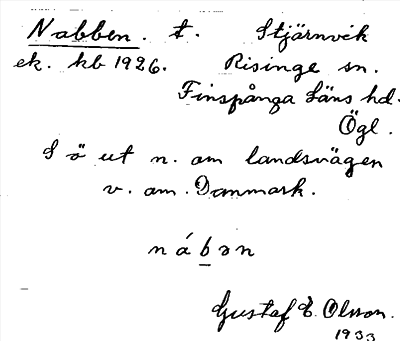 Nabben. t. Stjärnvik
ek. kb 1926. Risinge sn.
Finspånga läns hd.
Ögl.
S ö ut n. om landsvägen
v. om. Danmark.
n á b ə n
Gustaf E. Olsson.
1933